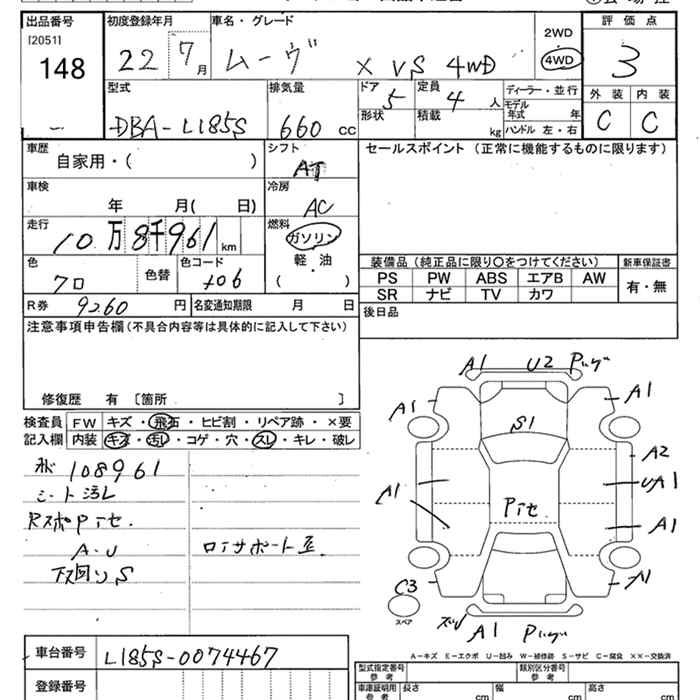 出品番号 初度登録年月 車名・グレード 2WD 評価点
[2051] 22 7月 ムーヴ X VS 4WD 4WD 3
148
型式 排気量 ドア 定員 ディーラー・並行 外装 内装
DBA-L185S 660 cc 5 4 人 モデル年式 年 C C
形状 積載 kg ハンドル 左・右
車歴 自家用・( ) シフト AT セールスポイント (正常に機能するものに限ります)
車検 年 月( 日) 冷房 AC
走行 10万8千961 km 燃料 ガソリン
軽油
( )
色 クロ 色替 色コード X06
装備品 (純正品に限り〇をつけてください) 新車保証書
PS PW ABS エアB AW 有・無
SR ナビ TV カワ
R券 9260 円 名変通知期限 月 日 後日品
注意事項申告欄 (不具合内容等は具体的に記入して下さい)
修復歴 有 〔箇所 〕
検査員 FW キズ・飛石・ヒビ割・リペア跡・×要
記入欄 内装 キズ・汚レ・コゲ・穴・スレ・キレ・破レ
108961
シート汚レ
Rスポpite.
A・U ロアサポート歪
下回りS
A1 U2
A1 A1
S1
A2
A1 UA1
Pite
A1
A1
C3
スペア
A1
A-キズ E-エクボ U-凹み W-補修跡 S-サビ C-腐食 ××-交換済
車台番号 L185S-0074467
登録番号
型式指定番号 参考 類別区分番号 参考
車庫証明用 参考 長さ cm 幅 cm 高さ cm